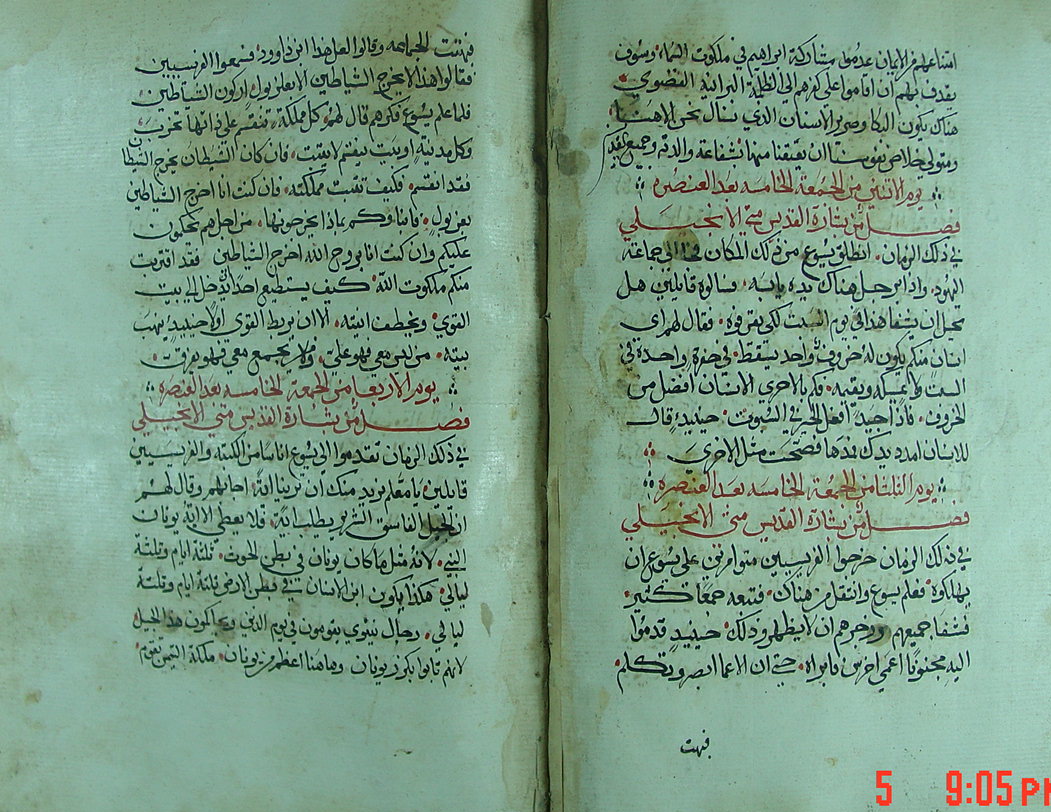 امتناعهم من الايمان عدموا مشاركة ابراهيم في ملكوت السماء وسوف
يقدف بهم ان اقاموا على كفرهم الى الظلمة البرانية القصوى
هناك يكون البكا وصرير الاسنان الذي نسال نحن الاهنا
ومتولي خلاص نفوسنا ان يعتقنا منها بشفاعة والدته وجميع
يوم الاثنين من الجمعة الخامسه بعد العنصره
فصل من بشارة القديس متى الانجيلي
في ذلك الزمان انطلق يسوع من ذلك المكان الى جماعة
اليهود واذا برجل هناك يده يابسه وسالوه قايلين هل
يحل ان يشفا هذا في يوم السبت لكي يقرفوه فقال لهم اي
انسان منكم يكون له خروف واحد يسقط في حفرة واحدة في
السبت ولا يمسكه ويقيمه فكم بالاحرى الانسان افضل من
الخروف فاذا جيد افعل الخير في السبوت حينيدٍ قال
للانسان امدد يدك فمدها فصحت مثل الاخرى
يوم الثلثا من الجمعة الخامسه بعد العنصره
فصل من بشارة القديس متى الانجيلي
في ذلك الزمان خرجوا الفريسيين متوامرين على يسوع ان
يهلكوه فعلم يسوع وانتقل من هناك فتبعه جمعًا كثير
فشفا جميعهم وزجرهم ان لا يظهروا ذلك حينيدٍ قدموا
اليه مجنونًا اعمى اخرس فابراه حتى ان الاعما ابصر وتكلم
فبهت
فبهتت الجماعه وقالوا لعل هدا ابن داوود فسمعوا الفريسيين
فقالوا هدا لا يخرج الشياطين الا بعلزبول اركون الشياطين
فلما علم يسوع فكرهم قال لهم كل مملكة تنقسم على ذاتها تخرب
وكل مدينة او بيت ينقسم لا يثبت فان كان الشيطان يخرج الشيطان
فقد انقسم فكيف تثبت مملكته فان كنت انا اخرج الشياطين
بعلزبول فابناوكم بماذا يخرجونها من اجل هم يحكمون
عليكم وان كنت انا بروح الله اخرج الشياطين فقد اقتربت
منكم ملكوت الله كيف يستطيع احدا يدخل الى بيت
القوي ويخطف انيته الا ان يربط القوي اولا حينيدٍ ينهب
بيته من ليس معي فهو علي ومن لا يجمع معي فهو يفرق
يوم الاربعا من الجمعة الخامسه بعد العنصره
فصل من بشارة القديس متى الانجيلي
في ذلك الزمان تقدموا الى يسوع اناسا من الكتبه والفريسيين
قايلين يا معلم نريد منك ان ترينا اية اجابهم وقال لهم
ان الجيل الفاسق الشرير يطلب اية فلا يعطى الا اية يونان
النبي لانه مثل ما كان يونان في بطن الحوت ثلثة ايام وثلثة
ليالي هكذا يكون ابن الانسان في بطن الارض ثلثة ايام وثلثة
ليالي رجال نينوي يقومون في يوم الدين ويحاكمون هدا الجيل
لانهم تابوا بكرز يونان وهاهنا اعظم من يونان ملكة التيمن تقوم
5 9:05 PM